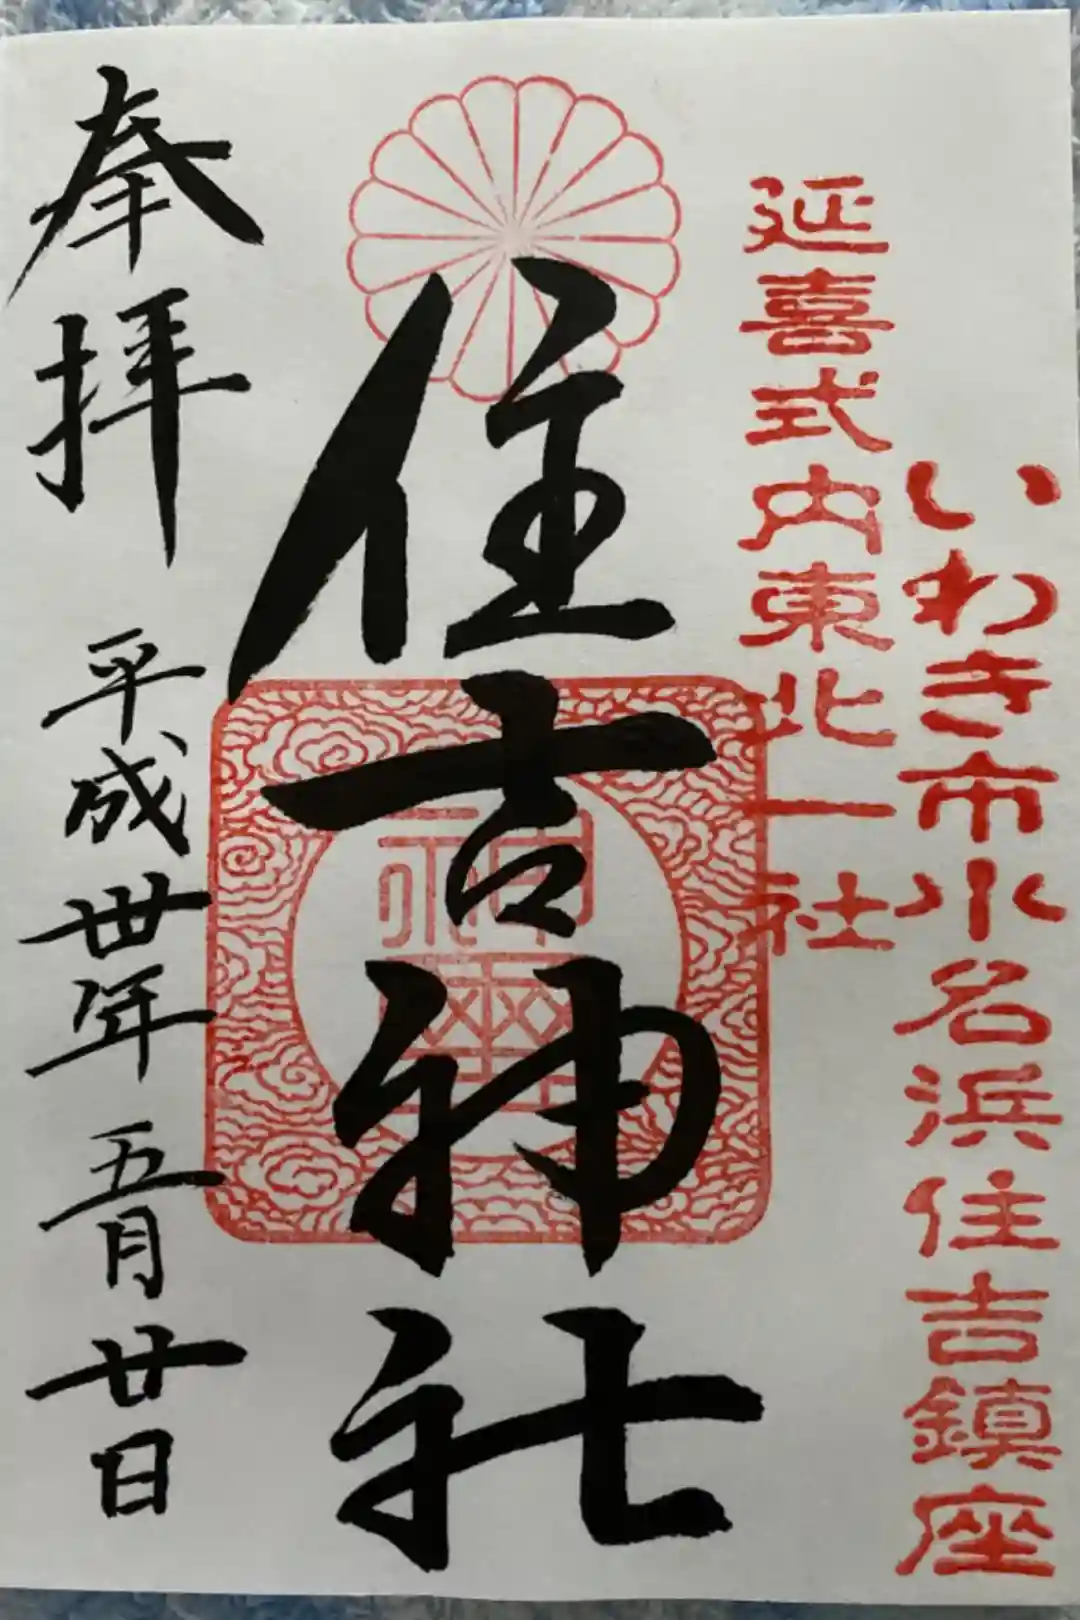 いわき市小名浜住吉鎮座
延喜式内東北一社
住吉神社
奉拝
平成卅年五月廿日